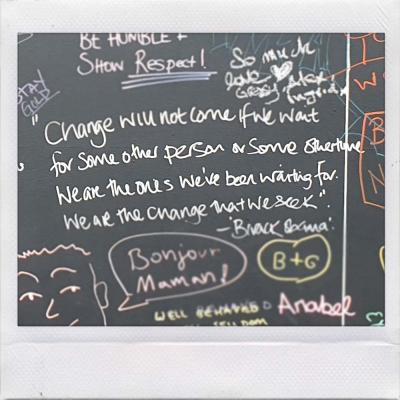 BE HUMBLE +
SHOW Respect!
So much
love
STAY
GOLD
"Change will not come if we wait
for some other person or some other time
We are the ones we've been waiting for.
We are the change that we seek".
- 'Barack Obama'
Bonjour
Maman!
B+G
WELL BEHAVED
SELDOM
Anabel